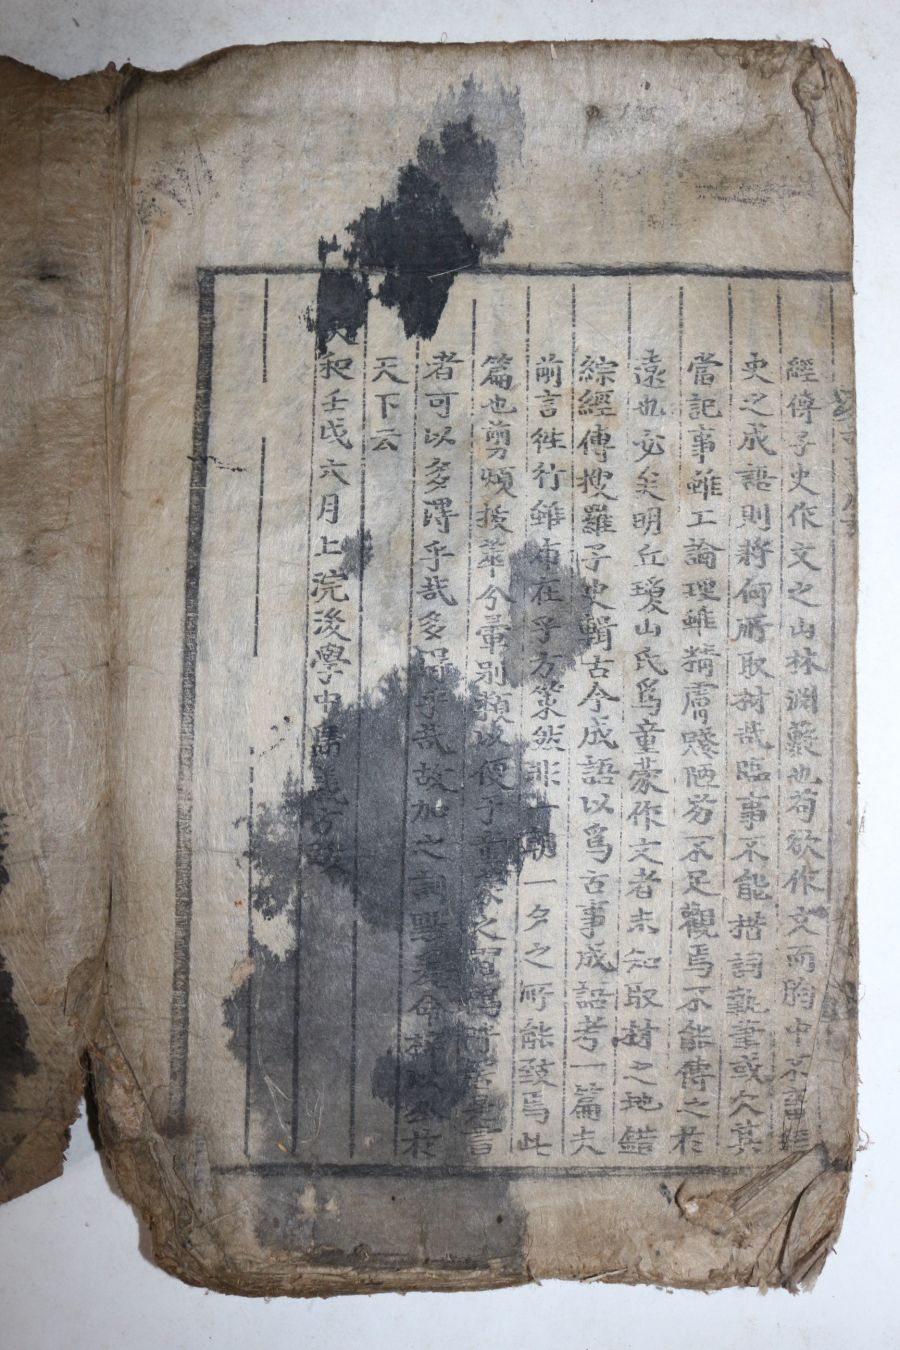 經傳子史作文之山林淵藪也苟欲作文而胸中不富經
史之成語則將何所取材哉臨事不能措詞執筆或欠其
當記事雖工論理雖精膚淺陋劣不足觀焉不能傳之於
遠也必矣明丘瓊山氏爲童蒙作文者未知取材之地錯
綜經傳搜羅子史輯古今成語以爲古事成語考一篇夫
前言徃行雖布在乎方策然非一朝一夕之所能致焉此
篇也剪煩拔萃今彙別類以便于童蒙之
者可以多得乎哉多得乎哉故加之訓點命以公於
天下云
和壬戌六月上浣後學中